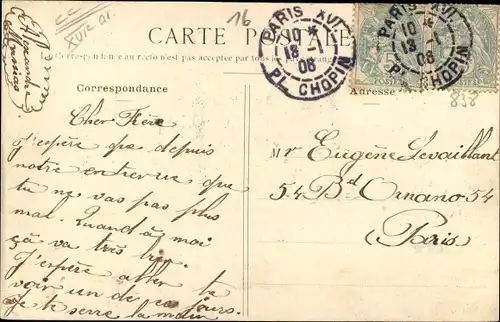 16
CARTE POSTALE
PARIS XVI
10 *
18 -1
08
PL. CHOPIN
PARIS XVI
10 *
18 -1
08
PL. CHOPIN
La Correspondance au recto n'est pas acceptée par tous les
Correspondance
Adresse
838
Cher Frère
J'espère que depuis
notre entrevue que
tu ne vas pas plus
mal. Quand à moi
çà va très bien.
J'espère aller te
voir un de ces jours.
Je te serre la main
Mr Eugène Levaillant
54 Bd Ornano 54
(Paris)